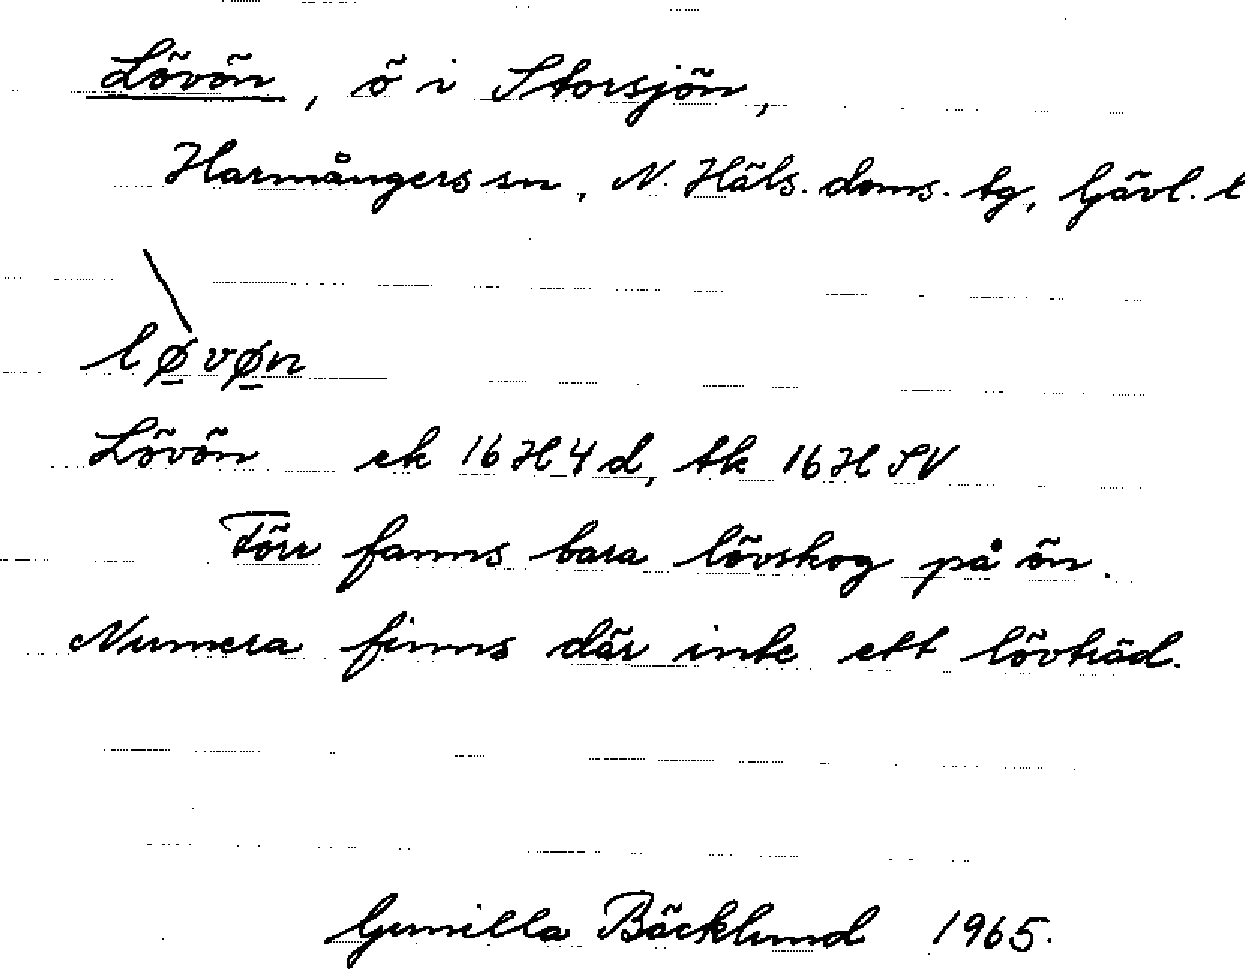 Lövön, ö i Storsjön,
Harmångers sn, N. Häls. doms. tg, Gävl. l
løvøn
Lövön ek 16H4d, tk 16H SV
Förr fanns bara lövskog på ön.
Numera finns där inte ett lövträd.
Gunilla Bäcklund 1965.